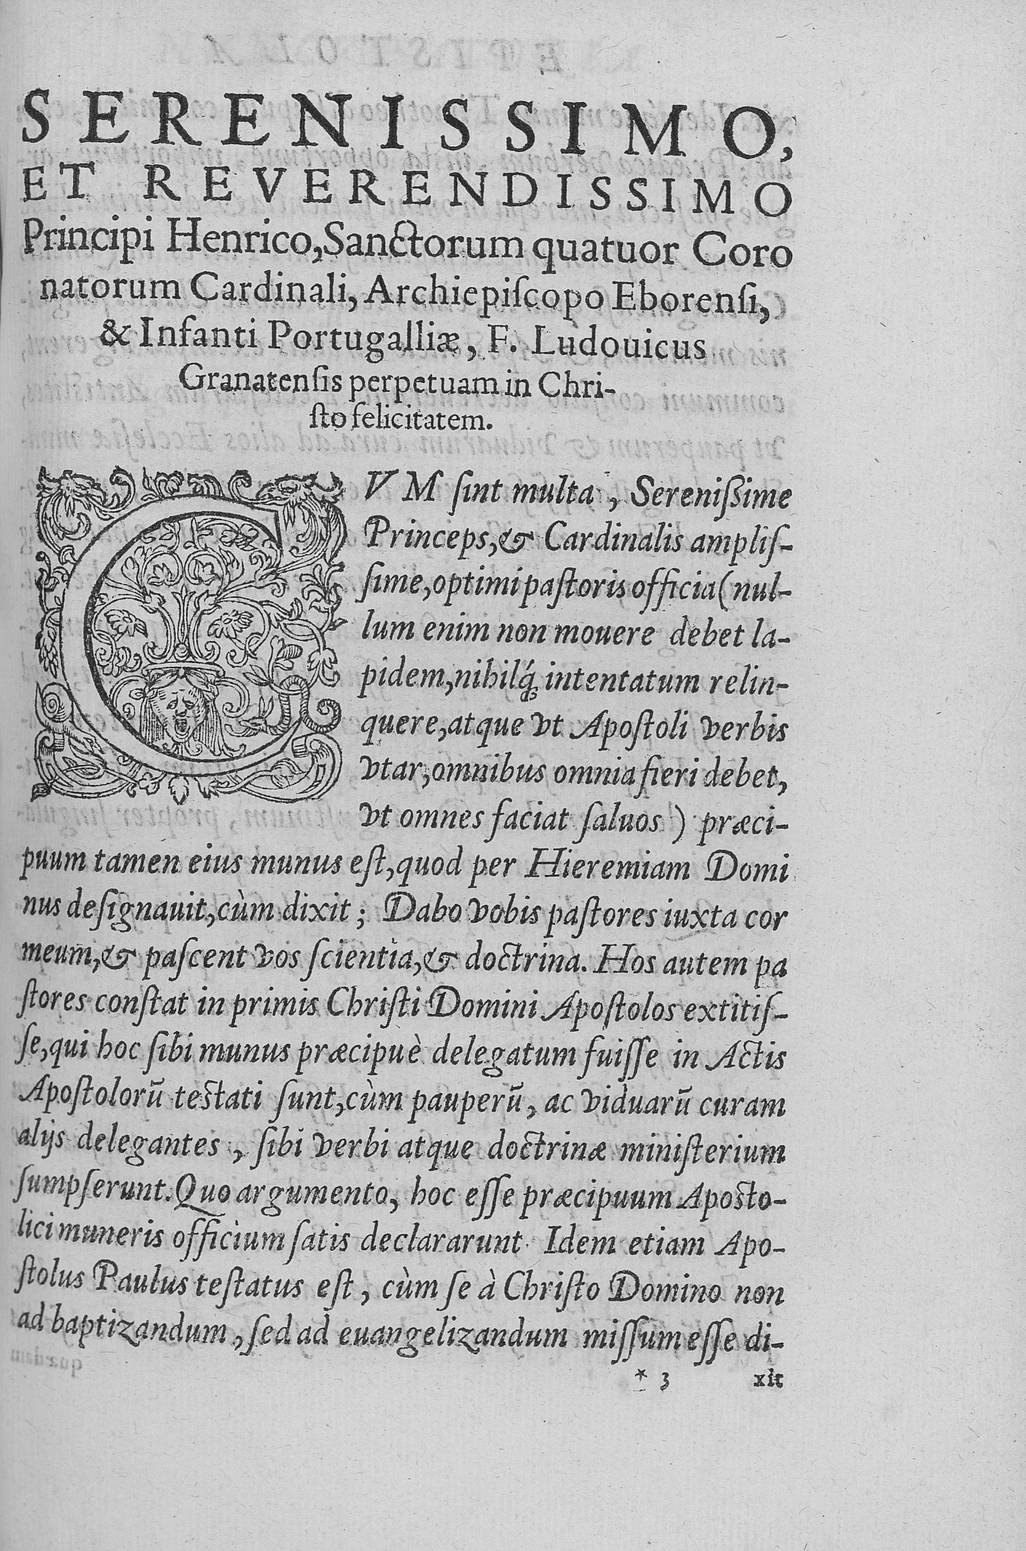 SERENISSIMO,
ET REVERENDISSIMO
Principi Henrico, Sanctorum quatuor Coro
natorum Cardinali, Archiepiſcopo Eborenſi,
& Infanti Portugalliæ, F. Ludouicus
Granatenſis perpetuam in Chri-
ſto felicitatem.
CVM ſint multa, Sereniſsime
Princeps, & Cardinalis ampliſ-
ſime, optimi paſtoris officia (nul-
lum enim non mouere debet la-
pidem, nihilq́; intentatum relin-
quere, atque vt Apoſtoli verbis
vtar, omnibus omnia fieri debet,
vt omnes faciat ſaluos) præci-
puum tamen eius munus eſt, quod per Hieremiam Domi
nus deſignauit, cùm dixit; Dabo vobis paſtores iuxta cor
meum, & paſcent vos ſcientia, & doctrina. Hos autem pa
ſtores conſtat in primis Chriſti Domini Apoſtolos extitiſ-
ſe, qui hoc ſibi munus præcipuè delegatum fuiſſe in Actis
Apoſtolorū teſtati ſunt, cùm pauperū, ac viduarū curam
alijs delegantes, ſibi verbi atque doctrinæ miniſterium
ſumpſerunt. Quo argumento, hoc eſſe præcipuum Apoſto-
lici muneris officium ſatis declararunt. Idem etiam Apo-
ſtolus Paulus teſtatus eſt, cùm ſe à Chriſto Domino non
ad baptizandum, ſed ad euangelizandum miſſum eſſe di-
* 3 xit